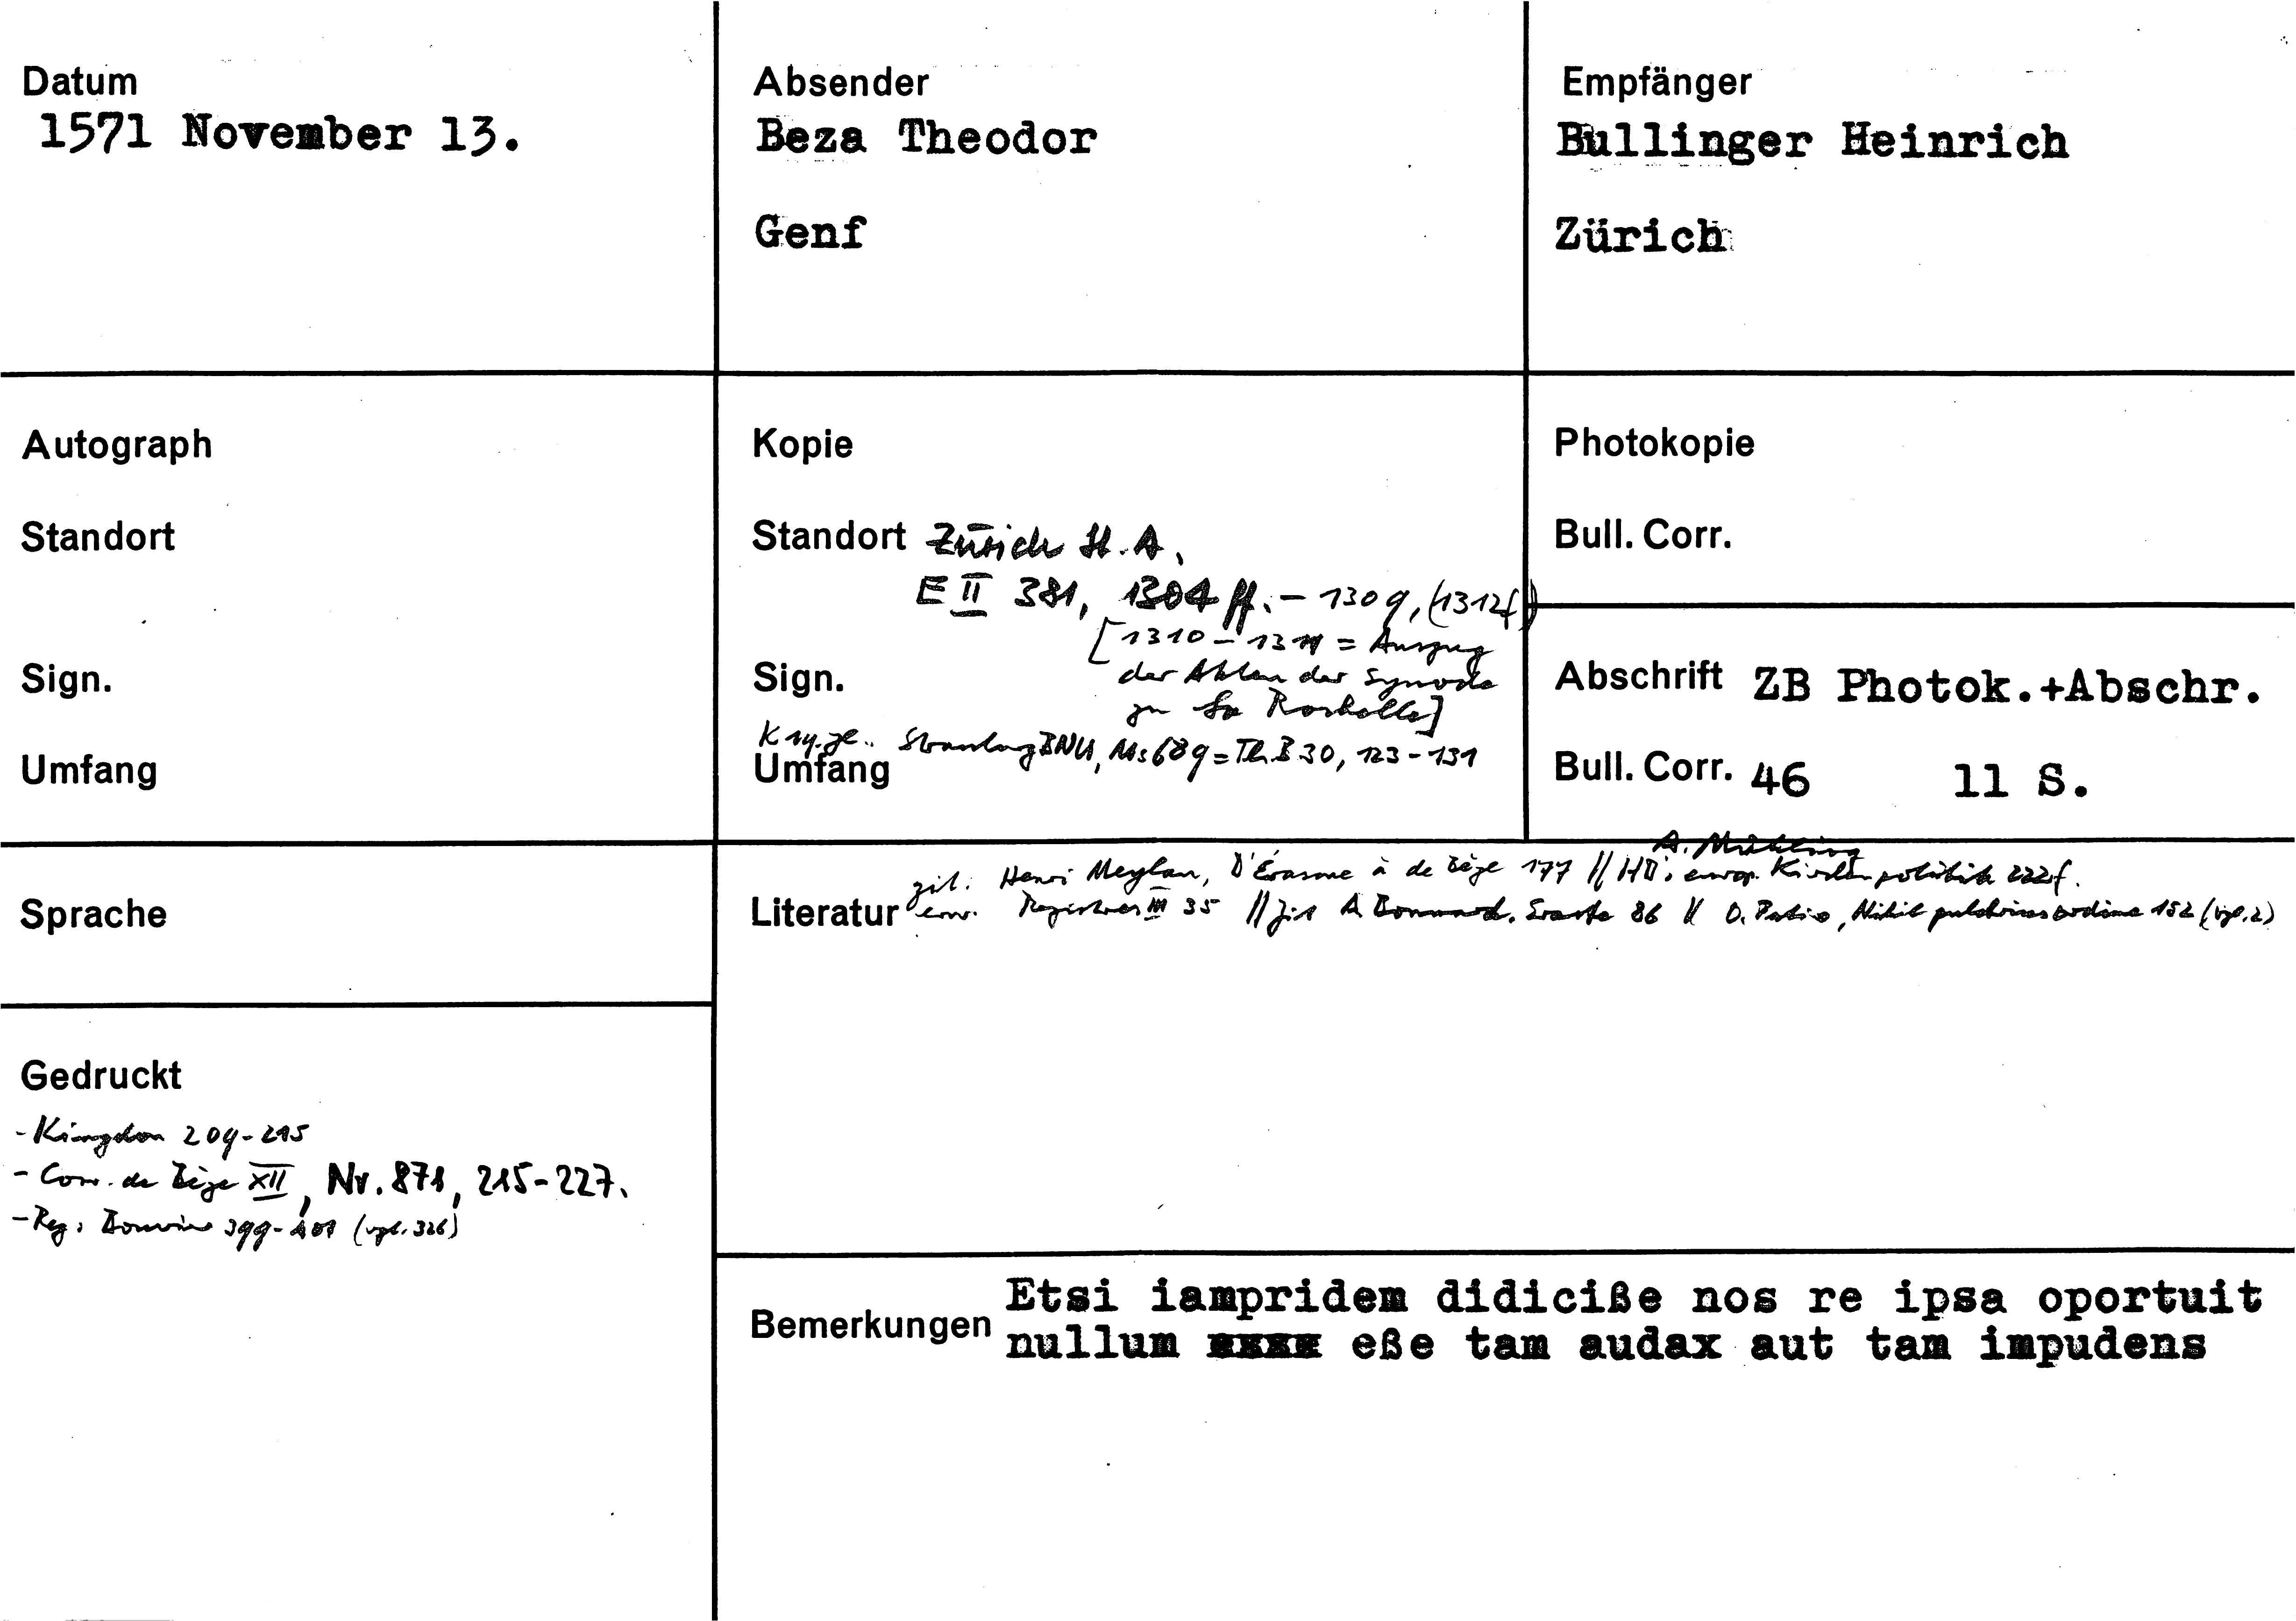 Datum
1571 November 13.
Absender
Beza Theodor
Genf
Empfänger
Bullinger Heinrich
Zürich
Autograph
Standort
Sign.
Umfang
Kopie
Standort Zürich St. A.
E II 381, 1304 ff. - 1309, (1312f)
[1310 - 1311 = Auszug
der Akten der Synode
zu La Rochelle]
Sign.
Strassburg BNU, Ms 689 = Th.B 30, 123-131
Umfang
Photokopie
Bull. Corr.
Abschrift ZB Photok.+Abschr.
Bull. Corr. 46 11 S.
Sprache
Literatur
A. Mühling
zit. Henri Meylan, D'Érasme à de Bèze 177 // europ. Kirchenpolitik 222f.
erw. Registres III 35 // zit A. Bonnard, Eraste 86 // Nihil pulchrius ordine 152 (vgl. 2)
Gedruckt
- Kingdon 209-215
- Corr. de Bèze XII, Nr. 871, 215-227.
- Reg: 399-401 (vgl. 326)
Bemerkungen
Etsi iampridem didiciße nos re ipsa oportuit
nullum eße tam audax aut tam impudens